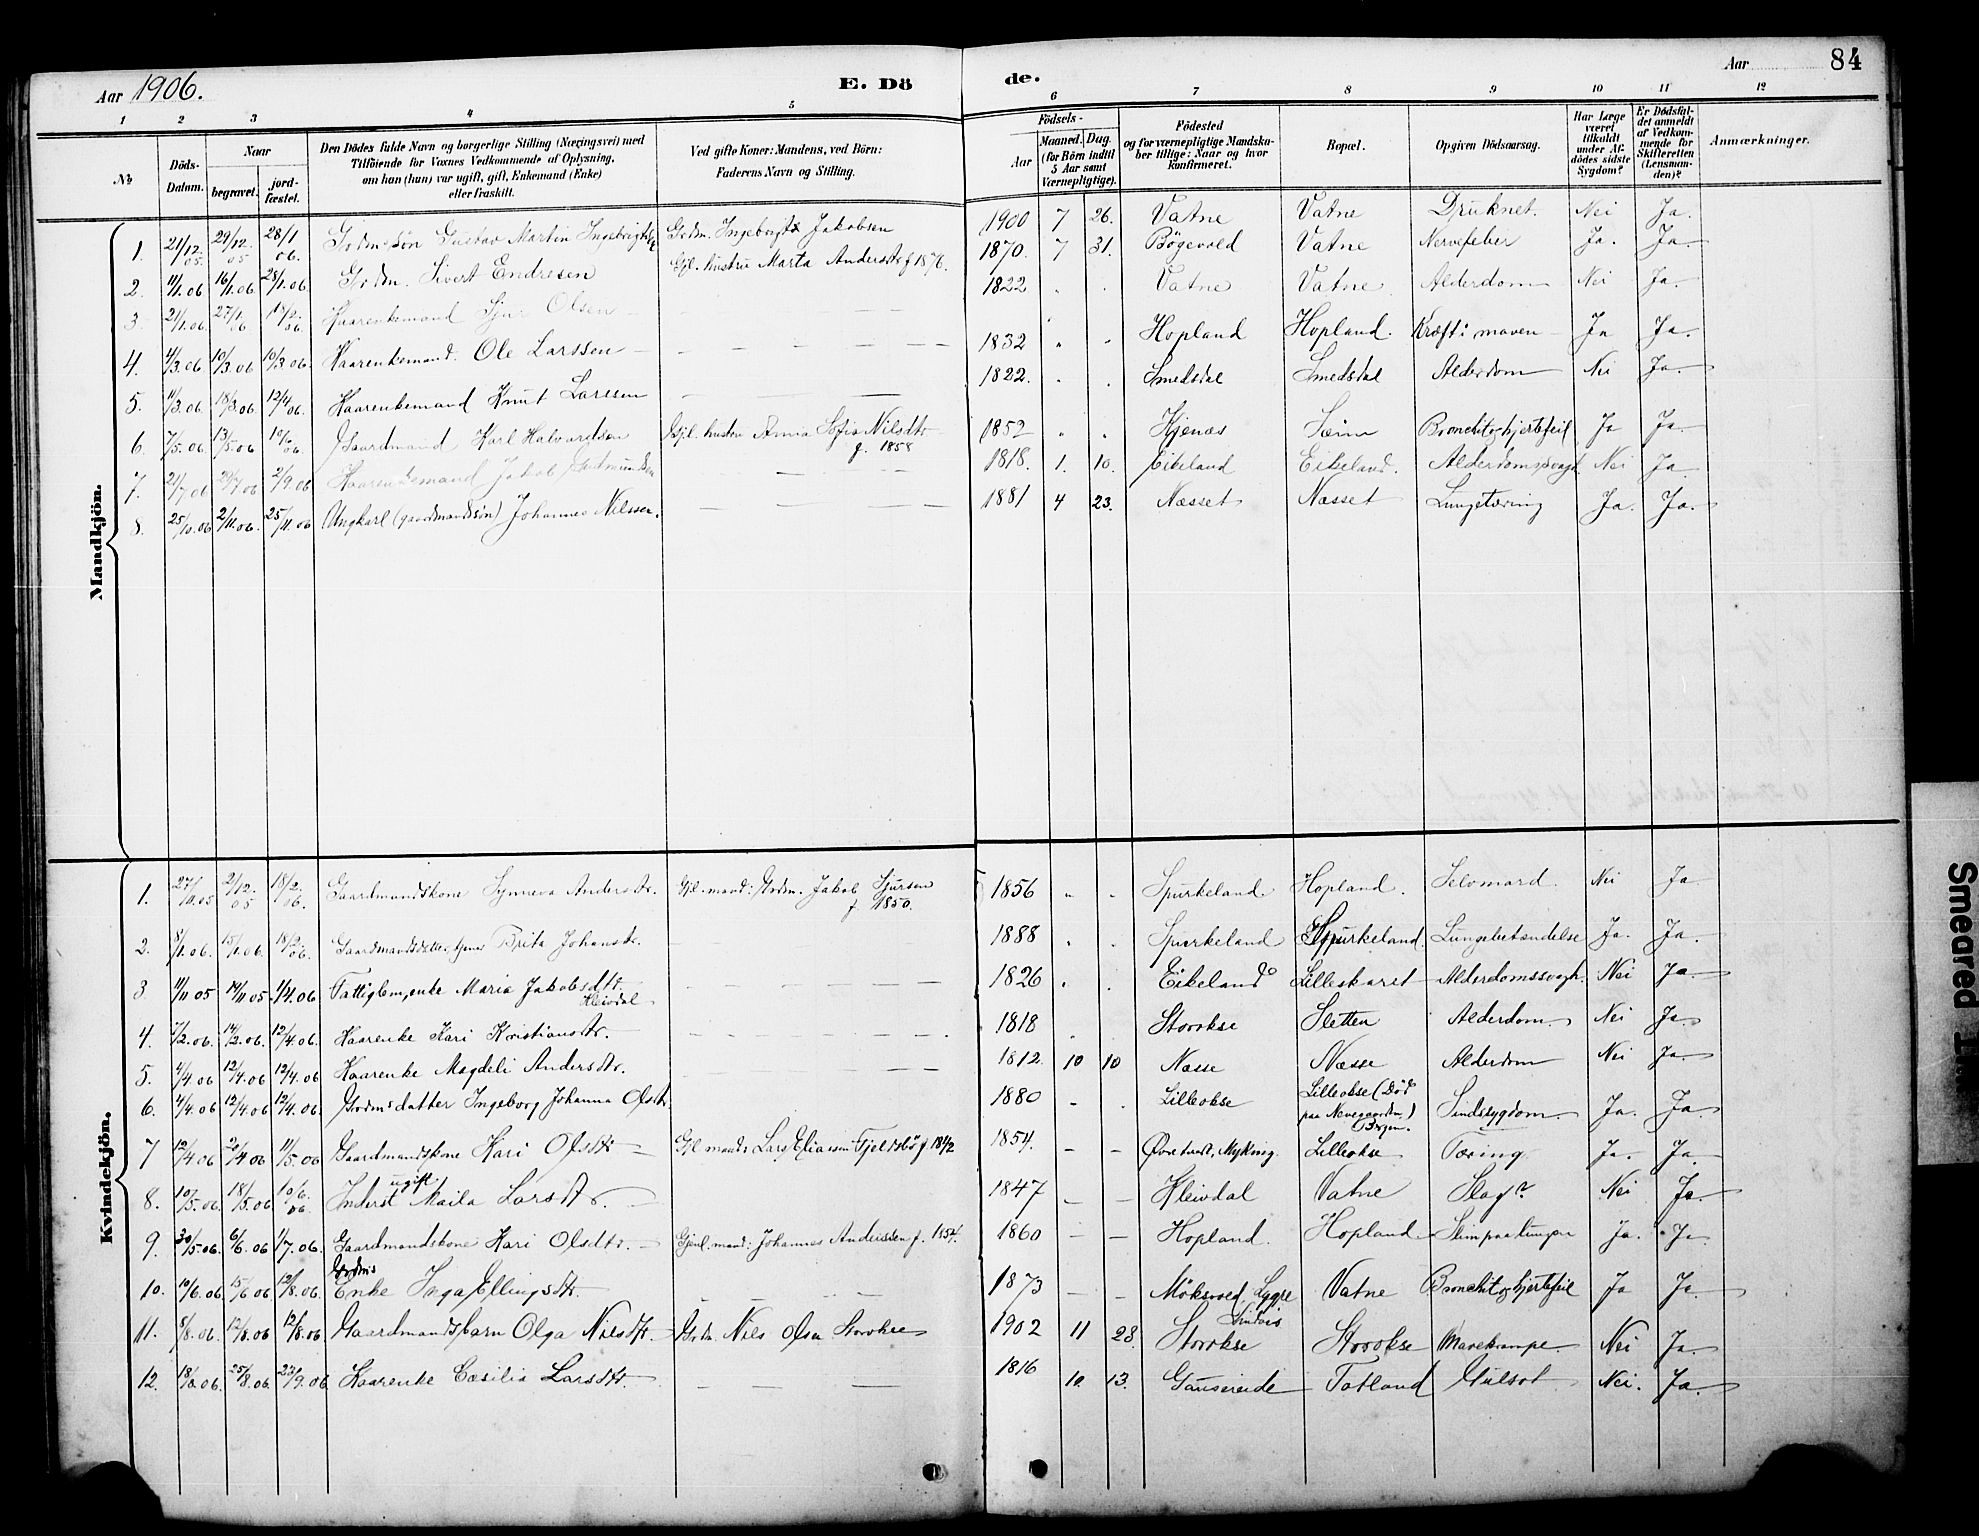 Aar 1906. E. Dö de. Aar 84
1 2 3 4 5 6 7 8 9 10 11 12
№
Döds-Datum.
Naar
begravet.
jord-fæstet.
Den Dødes fulde Navn og borgerlige Stilling (Næringsvei) med
Tilföiende for Voxnes Vedkommende af Oplysning,
om han (hun) var ugift, gift, Enkemand (Enke)
eller fraskilt.
Ved gifte Koner: Mandens, ved Börn:
Faderens Navn og Stilling.
Födsels-
Aar
Maaned. Dag.
(for Börn indtil
5 Aar samt
Værnepligtige).
Födested
og for værnepligtige Mandska-
ber tillige: Naar og hvor
konfirmeret.
Bopæl.
Opgiven Dödsaarsag.
Har Læge
været
tilkaldt
under Af-
dödes sidste
Sygdom?
Er Dödsfal-
det anmeldt
af Vedkom-
mende for
Skifteretten
(Lensman-
den)?
Anmærkninger.
Mandkjön.
1. 21/12.05. 29/12.05 28/1 06. Grdms sön Gustav Martin Ingebrigtsen Grdm. Ingebrigt Jakobsen 1900 7 26. Vatne Vatne Druknet. Nei Ja.
2. 11/1.06 16/1.06. 28/1.06 Grdm. Sivert Endresen Gjl. hustru Marta Andersdtr f 1876. 1870. 7 31. Bögevold Vatne Nervefeber Ja. Ja
3. 21/1.06. 27/1.06 Kaarenkemand Sjur Olsen 1822 Vatne Vatne Alderdom Nei Ja.
4. 4/3.06 10/3.06 10/3.06. Kaarenkemand. Ole Larssen 1832 Hopland Hopland. Kræft i maven Ja Ja.
5. 11/3.06. 18/3.06. 12/4.06. Kaarenkemand Knut Larssen 1822. Smedsdal Smedsdal Alderdom Nei Ja
6. 7/5.06. 13/5.06 Gaardmand Karl Halvardsen Gjl. hustru Anna Sofia Nilsdtr f. 1858 1852 Kjenæs Seim Bronchit og hjertefeil Ja Ja.
7. 21/7.06 29/7.06 2/9.06 Kaarenkemand Jakob 1818. 1. 10. Eikeland Eikeland. Alderdomssvagh. Nei Ja
8. 25/10.06 2/11.06. 25/11.06 Ungkarl (gaardmandssön) Johannes Nilssen. 1881 4 23. Næsset Næsset Lungetæring Ja. Ja.
Kvindekjön.
1. 27/11.05 2/12.05 18/2.06. Gaardmandskone Synneva Andersdtr. Gjl. mand: Grdm. Jakob Sjursen f. 1850. 1856 Spurkeland Hopland. Selvmord. Nei Ja
2. 8/1.06. 15/1.06. 18/2.06. Gaardmandsdatter, Brita Johansdtr. 1888 Spurkeland Spurkeland. Lungebetændelse Ja. Ja.
3 11/11 05 14/11 05. 1/4.06 Fattiglem, enke Maria Jakobsdtr. Kleivdal 1826 Eikeland Lilleskaret Alderdomssvagh. Nei Ja.
4. 7/2.06. 14/2.06. 12/4.06. Kaarenke Kari Kristiansdtr. 1818 Storokse Sletten Alderdom. Nei Ja.
5. 4/4.06 12/4.06 12/4.06 Kaarenke Magdeli Andersdtr. 1812. 10 10 Næsse Næsse Alderdom Nei Ja.
6. 4/4.06 12/4.06 12/4.06. Grdmsdatter Ingeborg Johanna Olsdtr. 1880 Lilleokse Lilleokse (Död paa Nevegaarden) Bergen. Sindssygdom Ja. Ja.
7 12/4.06 20/4.06 11/5.06 Gaardmandskone Kari Olsdtr Gjl. mand: Lars Eliassen Fjeldsbö f 1842 1854. Övretveit, Mykking. Lilleokse Tæring Ja. Ja.
8. 10/5.06. 18/5.06 10/6.06. Inderst ugift Maila Larsdtr. 1847 Kleivdal Vatne Slag? Nei Ja.
9. 30/5.06. 6/6.06 1/7.06. Gaardmandskone Kari Olsdtr. Gjenl. mand: Johannes Andersen f. 1854. 1860 Hopland. Hopland Slim paa lunger Ja. Ja.
10. 10/6.06 15/6 06 12/8.06. Grdms Enke Inga Ellingsdtr. 1873 Möksvold, Lygre Vatne Bronchit og hjertefeil Ja Ja.
11. 8/8.06. 12/8.06 12/8.06 Gaardmandsbarn Olga Nilsdtr. Grdm. Nils Olsen Storokse 1902 11 28. Lindås Storokse Storokse Mavekrampe. Nei Ja.
12. 18/8.06. 25/8.06. 23/9.06 Kaarenke Cæsilia Larsdtr. 1816 10. 13. Gausereide Totland Gulsot Nei. Ja.
Smeared